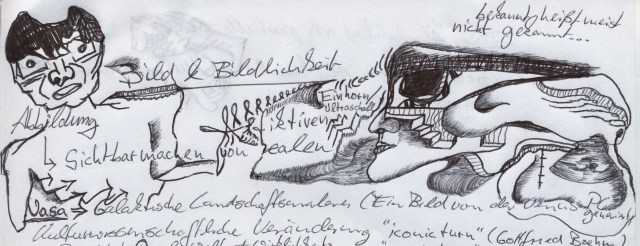 bekannt heißt meist
nicht gekannt...
Bild & Bildlichkeit
Einhorn
Ultraschall
Abbildung
Fiktiven
↳ Sichtbarmachen von Realen!
Nasa → Galaktische Landschaftsmalerei (Ein Bild von der Venus
genannt)
Kulturwissenschaftliche Veränderung "iconic turn" (Gottfried Boehm)